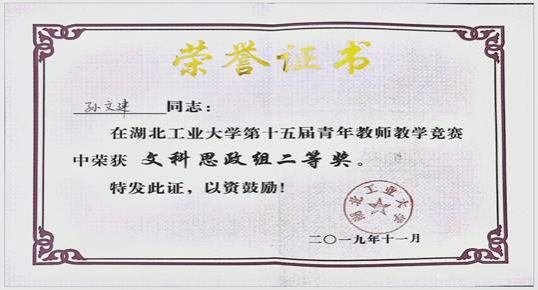 荣誉证书
孙文建 同志：
在湖北工业大学第十五届青年教师教学竞赛
中荣获 文科思政组二等奖。
特发此证，以资鼓励！
湖北工业大学
二〇一九年十一月